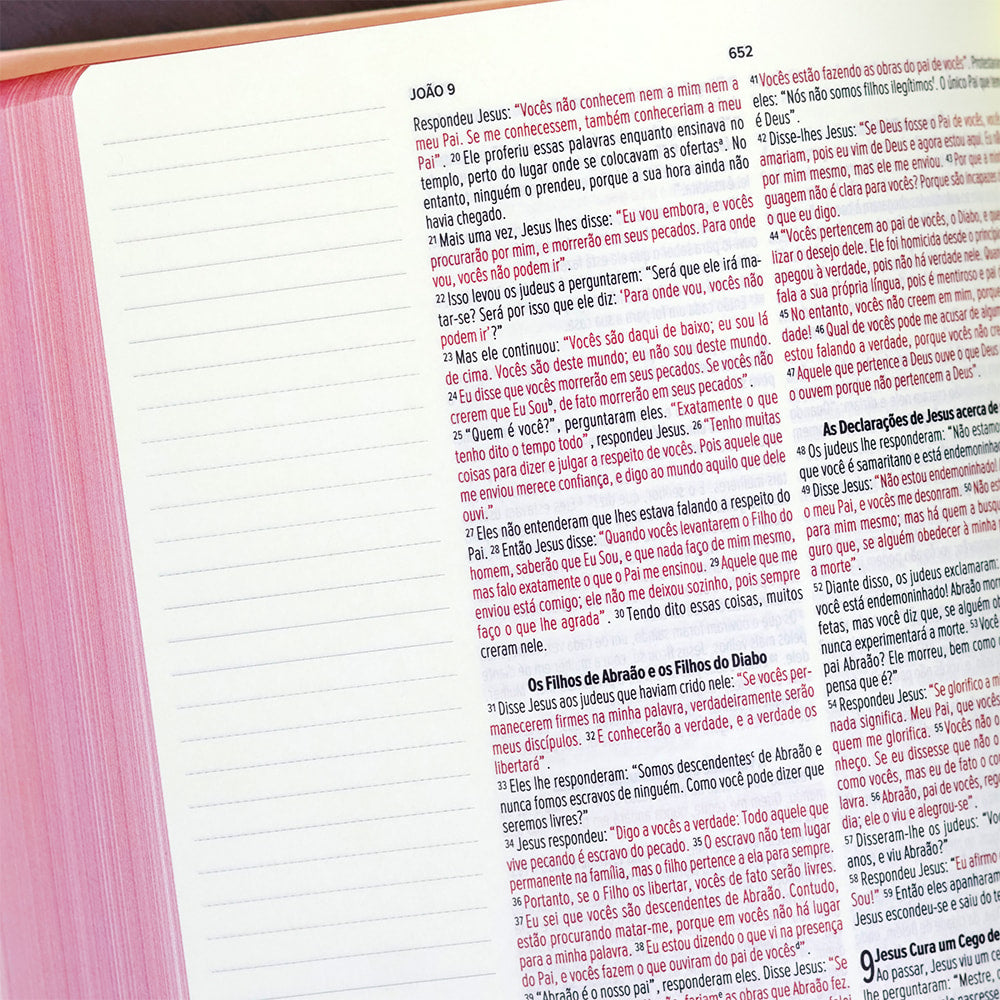 JOÃO 9
652
Respondeu Jesus: “Vocês não conhecem nem a mim nem a
meu Pai. Se me conhecessem, também conheceriam a meu
Pai”. 20 Ele proferiu essas palavras enquanto ensinava no
templo, perto do lugar onde se colocavam as ofertasª. No
entanto, ninguém o prendeu, porque a sua hora ainda não
havia chegado.
21 Mais uma vez, Jesus lhes disse: “Eu vou embora, e vocês
procurarão por mim, e morrerão em seus pecados. Para onde
vou, vocês não podem ir”.
22 Isso levou os judeus a perguntarem: “Será que ele irá ma-
tar-se? Será por isso que ele diz: ‘Para onde vou, vocês não
podem ir’?”
23 Mas ele continuou: “Vocês são daqui de baixo; eu sou lá
de cima. Vocês são deste mundo; eu não sou deste mundo.
24 Eu disse que vocês morrerão em seus pecados. Se vocês não
crerem que Eu Souᵇ, de fato morrerão em seus pecados”.
25 “Quem é você?”, perguntaram eles. “Exatamente o que
tenho dito o tempo todo”, respondeu Jesus. 26 “Tenho muitas
coisas para dizer e julgar a respeito de vocês. Pois aquele que
me enviou merece confiança, e digo ao mundo aquilo que dele
ouvi.”
27 Eles não entenderam que lhes estava falando a respeito do
Pai. 28 Então Jesus disse: “Quando vocês levantarem o Filho do
homem, saberão que Eu Sou, e que nada faço de mim mesmo,
mas falo exatamente o que o Pai me ensinou. 29 Aquele que me
enviou está comigo; ele não me deixou sozinho, pois sempre
faço o que lhe agrada”. 30 Tendo dito essas coisas, muitos
creram nele.
Os Filhos de Abraão e os Filhos do Diabo
31 Disse Jesus aos judeus que haviam crido nele: “Se vocês per-
manecerem firmes na minha palavra, verdadeiramente serão
meus discípulos. 32 E conhecerão a verdade, e a verdade os
libertará”.
33 Eles lhe responderam: “Somos descendentesᶜ de Abraão e
nunca fomos escravos de ninguém. Como você pode dizer que
seremos livres?”
34 Jesus respondeu: “Digo a vocês a verdade: Todo aquele que
vive pecando é escravo do pecado. 35 O escravo não tem lugar
permanente na família, mas o filho pertence a ela para sempre.
36 Portanto, se o Filho os libertar, vocês de fato serão livres.
37 Eu sei que vocês são descendentes de Abraão. Contudo,
estão procurando matar-me, porque em vocês não há lugar
para a minha palavra. 38 Eu estou dizendo o que vi na presença
do Pai, e vocês fazem o que ouviram do pai de vocêsᵈ”.
39 “Abraão é o nosso pai”, responderam eles. Disse Jesus: “Se
fariamᵉ as obras que Abraão fez.
41 Vocês estão fazendo as obras do pai de vocês”.
eles: “Nós não somos filhos ilegítimosᶠ. O único Pai que
é Deus”.
42 Disse-lhes Jesus: “Se Deus fosse o Pai de vocês,
amariam, pois eu vim de Deus e agora estou aqui. Eu
por mim mesmo, mas ele me enviou. 43 Por que a
guagem não é clara para vocês? Porque são incapazes
o que eu digo.
44 “Vocês pertencem ao pai de vocês, o Diabo, e
lizar o desejo dele. Ele foi homicida desde o
apegou à verdade, pois não há verdade nele.
fala a sua própria língua, pois é mentiroso e pai
45 No entanto, vocês não creem em mim,
dade! 46 Qual de vocês pode me acusar de
estou falando a verdade, porque vocês não
47 Aquele que pertence a Deus ouve o que Deus
o ouvem porque não pertencem a Deus”.
As Declarações de Jesus acerca de
48 Os judeus lhe responderam: “Não
que você é samaritano e está
49 Disse Jesus: “Não estou endemoninhado!
o meu Pai, e vocês me desonram. 50 Não
para mim mesmo; mas há quem a
guro que, se alguém obedecer à minha
a morte”.
52 Diante disso, os judeus exclamaram:
você está endemoninhado! Abraão
fetas, mas você diz que, se alguém
nunca experimentará a morte. 53
pai Abraão? Ele morreu, bem como
pensa que é?”
54 Respondeu Jesus: “Se glorifico a
nada significa. Meu Pai, que vocês
quem me glorifica. 55 Vocês não o
nheço. Se eu dissesse que não o
como vocês, mas eu de fato o
lavra. 56 Abraão, pai de vocês,
dia; ele o viu e alegrou-se”.
57 Disseram-lhe os judeus:
anos, e viu Abraão?”
58 Respondeu Jesus: “Eu afirmo
Sou!” 59 Então eles apanharam
Jesus escondeu-se e saiu do
9 Jesus Cura um Cego de
Ao passar, Jesus viu um
lhe perguntaram: “Mestre,